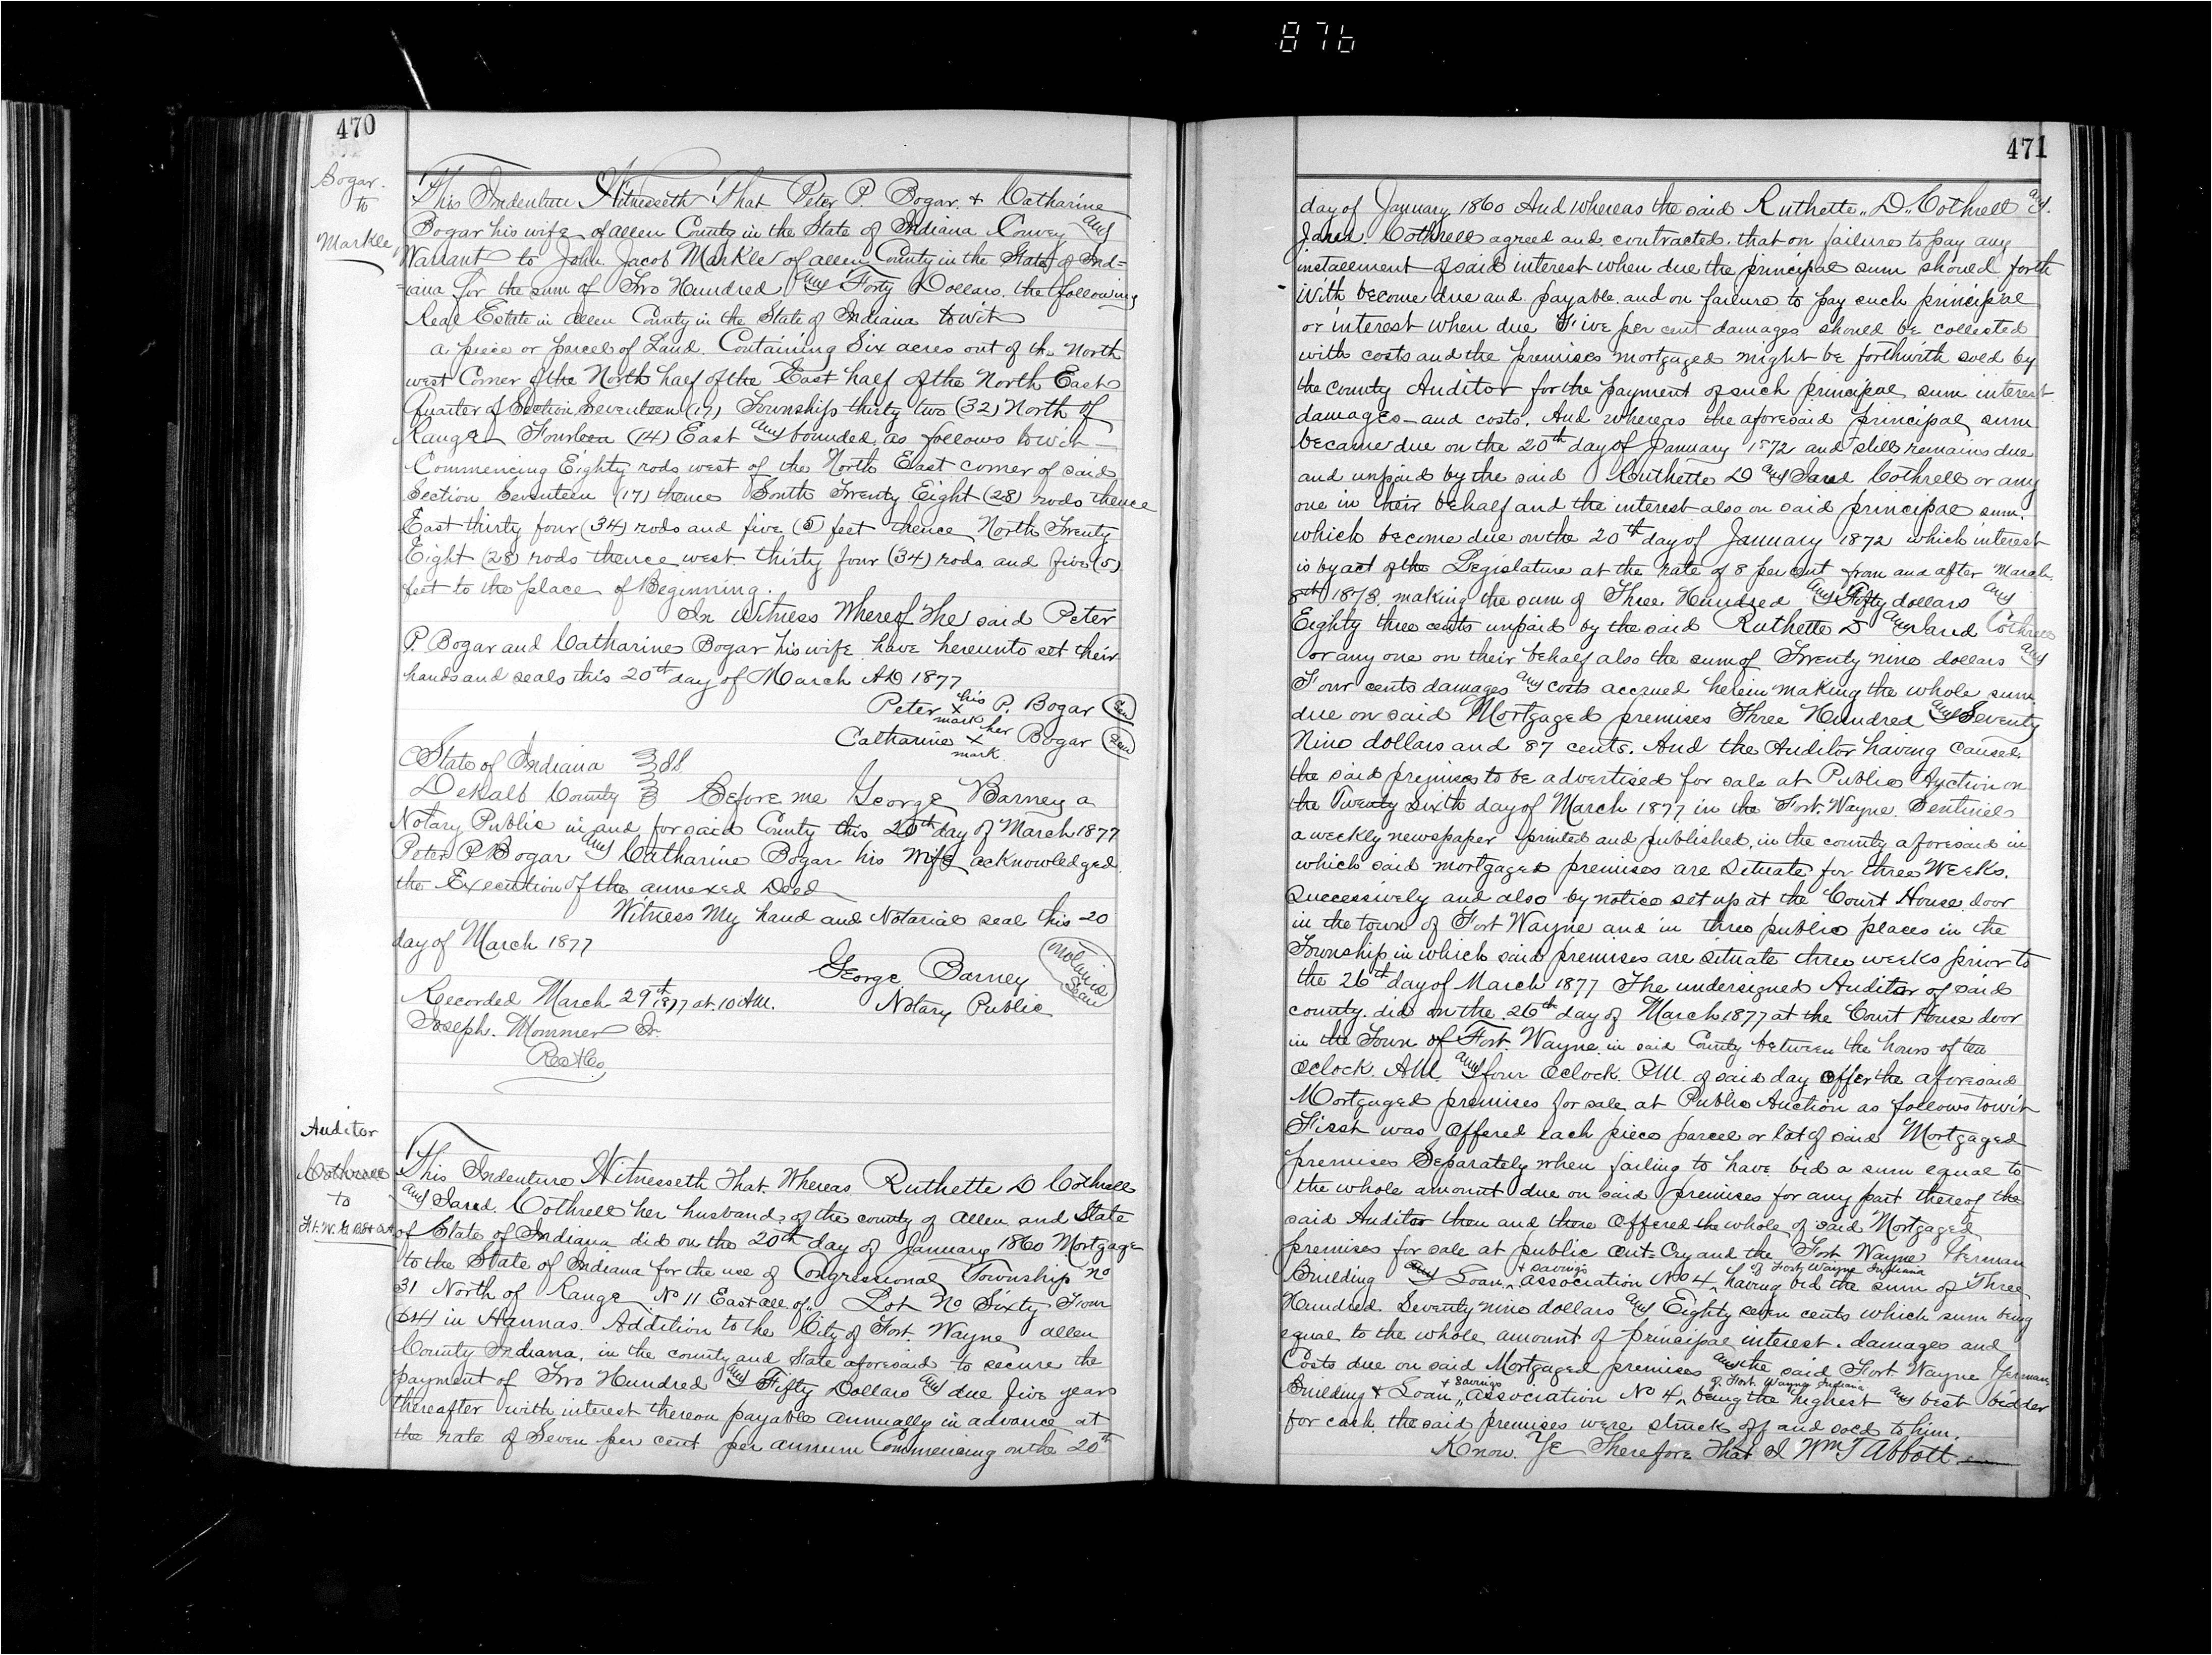 876
470
Bogar.
to
Markle,
This Indenture Witnesseth That Peter P. Bogar. & Catharine
Bogar his wife of allen County in the State of Indiana Convey and
Warrant to John Jacob Markle of allen County in the State of Ind=
=iana for the sum of Two Hundred and Forty Dollars. the following
Real Estate in allen County in the State of Indiana towit
a piece or parcel of Land. Containing Six acres out of the North
west Corner of the North half of the East half of the North East
Quarter of Section Seventeen (17) Township thirty two (32) North of
Range Fourteen (14) East and bounded as follows towit
Commencing Eighty rods west of the North East corner of said
Section Seventeen (17) thence South Twenty Eight (28) rods thence
East thirty four (34) rods and five (5) feet thence North Twenty
Eight (28) rods thence west thirty four (34) rods and five (5)
feet to the place of Beginning.
In Witness Whereof The said Peter
P. Bogar and Catharine Bogar his wife have hereunto set their
hands and seals this 20th day of March AD 1877
Peter his x mark P. Bogar (Seal)
Catharine her x mark Bogar (Seal)
State of Indiana } SS
DeKalb County } Before me George Barney a
Notary Public in and for said County this 20th day of March 1877
Peter P Bogar and Catharine Bogar his wife acknowledged
the Execution of the annexed Deed
Witness My hand and Notarial seal this 20
day of March 1877
George Barney (Notarial Seal)
Recorded March 29th 1877 at 10 AM. Notary Public
Joseph. Mommer Jr.
Auditor
Cothrell
to
This Indenture Witnesseth That Whereas Ruthette D Cothrell
and Jared Cothrell her husband, of the county of Allen and State
of State of Indiana did on the 20th day of January 1860 Mortgage
to the State of Indiana for the use of Congressional Township No
31 North of Range No 11 East all of Lot No Sixty Four
(64) in Hannas. Addition to the City of Fort Wayne allen
County Indiana, in the county and State aforesaid to secure the
payment of Two Hundred and Fifty Dollars and due five years
thereafter with interest thereon payable annually in advance at
the rate of Seven per cent per annum Commencing on the 20th
471
day of January 1860 And whereas the said Ruthette D. Cothrell and
Jared. Cothrell agreed and contracted, that on failure to pay any
installment of said interest when due the principal sum should forth
with become due and payable and on failure to pay such principal
or interest when due Five per cent damages should be collected
with costs and the premises mortgaged might be forthwith sold by
the county Auditor for the payment of such principal sum interest
damages and costs. And whereas the aforesaid principal sum
became due on the 20th day of January 1872 and still remains due
and unpaid by the said Ruthette D and Jared Cothrell or any
one in their behalf and the interest also on said principal sum.
which become due on the 20th day of January 1872 which interest
is by act of the Legislature at the rate of 8 per cent from and after March
8th 1873. making the sum of Three Hundred and Fifty dollars and
Eighty three cents unpaid by the said Ruthette D and Jared Cothrell
or any one on their behalf also the sum of Twenty nine dollars and
Four cents damages and costs accrued herein making the whole sum
due on said Mortgaged premises Three Hundred and Seventy
Nine dollars and 87 cents. And the Auditor having caused
the said premises to be advertised for sale at Public Auction on
the Twenty sixth day of March 1877 in the Fort. Wayne. Sentinel
a weekly newspaper printed and published, in the county aforesaid in
which said mortgaged premises are situate for three Weeks.
Successively and also by notice set up at the Court House door
in the town of Fort Wayne and in three public places in the
Township in which said premises are situate three weeks prior to
the 26th day of March 1877 The undersigned Auditor of said
county. did on the 26th day of March 1877 at the Court House door
in the Town of Fort. Wayne in said County between the hours of ten
Oclock. AM. and four Oclock. PM. of said day Offer the aforesaid
Mortgaged premises for sale at Public Auction as follows towit
First was Offered each piece parcel or lot of said Mortgaged
premises Separately when failing to have bid a sum equal to
the whole amount due on said premises for any part thereof the
said Auditor then and there Offered the whole of said Mortgaged
premises for sale at public Out=Cry and the Fort Wayne German
Building and Loan + savings association No 4 of Fort Wayne Indiana having bid the sum of Three
Hundred Seventy nine dollars and Eighty seven cents which sum being
equal to the whole amount of principal interest. damages and
Costs due on said Mortgaged premises and the said Fort Wayne German
Building & Loan + savings association No 4 of Fort. Wayne Indiana being the highest and best bidder
for cash. the said premises were struck off and sold to him.
Know. Ye Therefore That I Wm T Abbott.